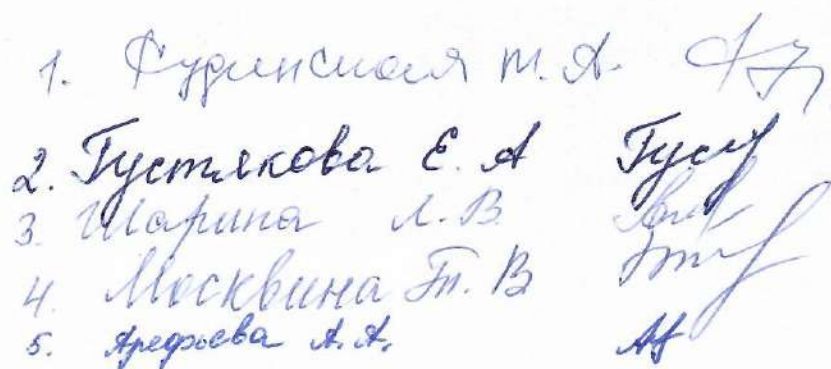 1. Кудинская М. А.
2. Густякова Е. А Гус
3. Шарина Л. В.
4. Москвина Т. В
5. Арефьева А. А.